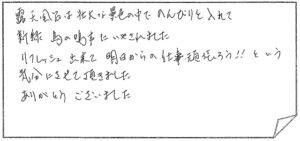 露天風呂は壮大な景色の中でのんびりと入れて
新緑 鳥の鳴声にいやされました
リフレッシュ出来て明日からの仕事頑張ろう!!という
気分にさせて頂きました
ありがとうございました